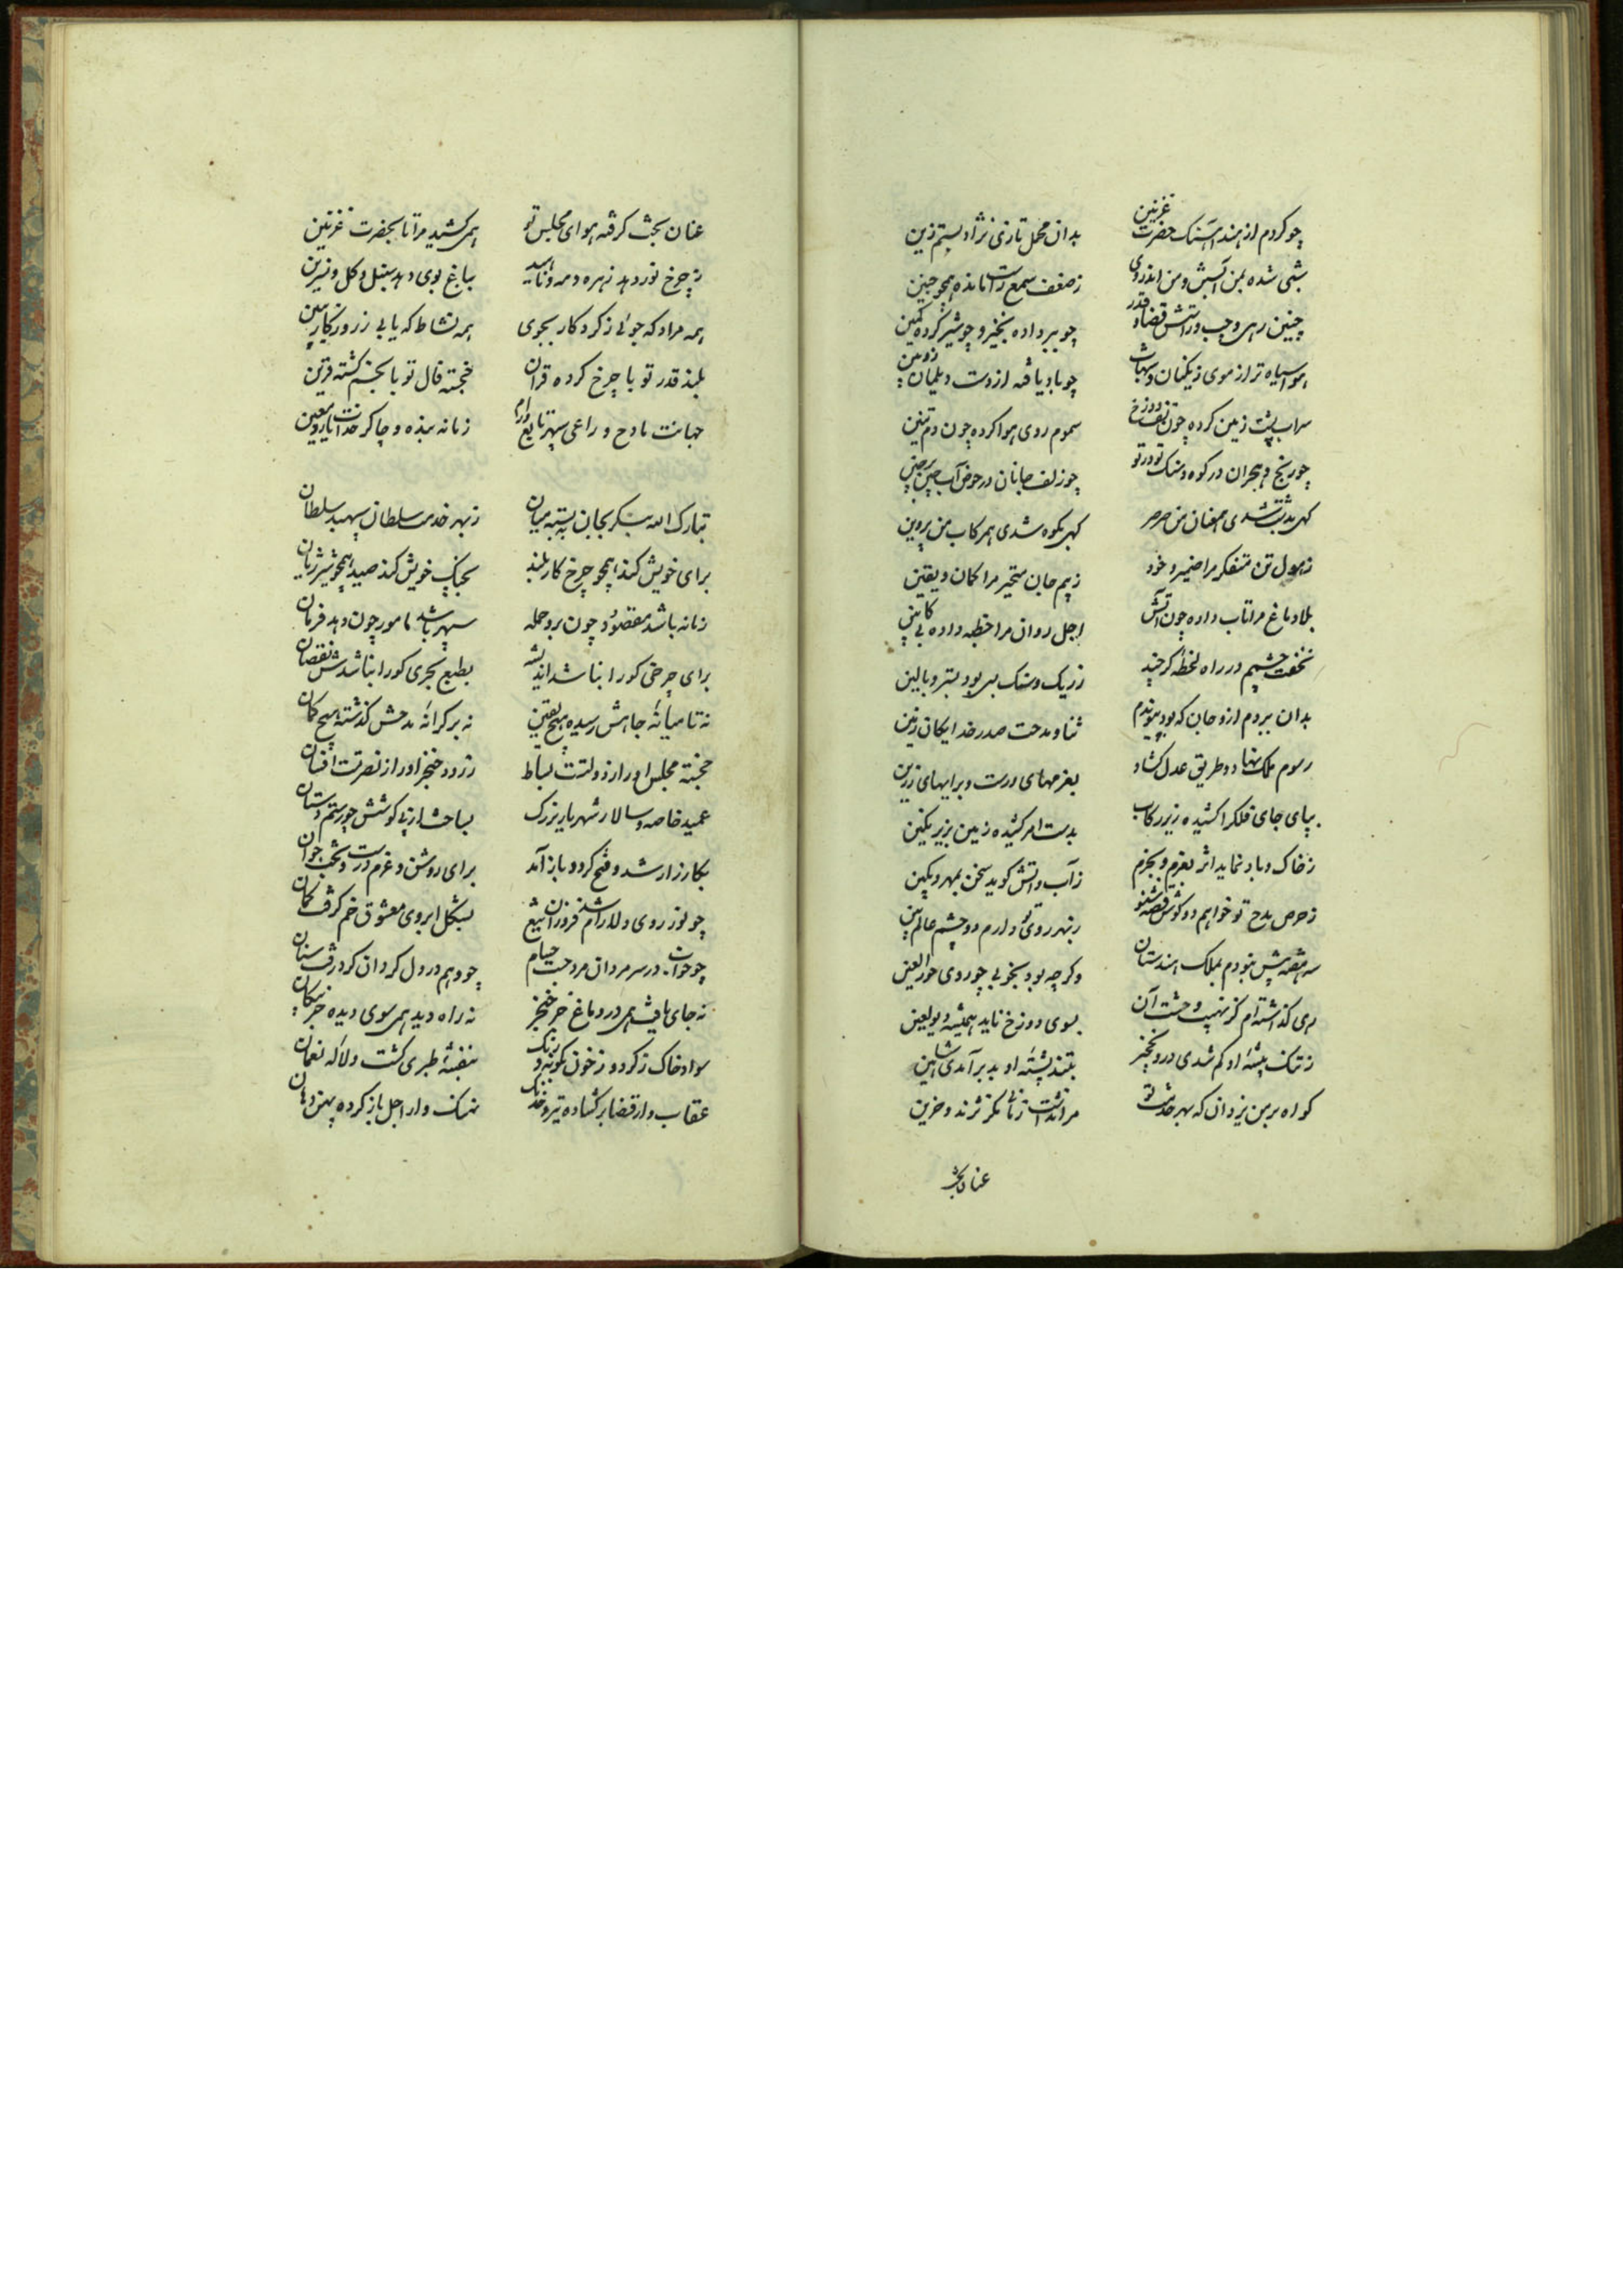 چو کردم از هند آهنک حضرت غزنین بدان محمل تازی نژاد بستم زین
شبی شده بمن آبستن و من اندر وی ز ضعف سمع مانده همچو جنین
چنین رهی و چپ و راستش قضا و قدر چو ببر داده بخیز و چو شیر کرده کمین
هوا سیاه تر از موی زنکیان و شهاب چو باد یافته از دست دیلمان زوپین
سراب پشت زمین کرده چون تف دوزخ سموم روی هوا کرده چون دم تنین
چو رنج و هجران در کوه و سنک تو در تو چو زلف جانان در حوض آب چین بر چین
کهی بدشت شدی همعنان من صرصر کهی بکوه شدی همرکاب من پروین
ز هول تن متفکر مرا ضمیر و خرد ز بیم جان متحیر مرا کمان و یقین
بلا دماغ مرا تاب داده چون آتش اجل روان مرا خطبه داده بی کابین
نخفت چشمم در راه لحظه کر چند ز ریک و سنک بر بود بستر و بالین
بدان ببردم ازو جان که بود پیوندم ثنا و مدحت صدر خدایکان زمین
رسوم ملک نهاد و طریق عدل کشاد بعزمهای درست و برایهای رزین
بپای جای فلک را کشیده زیر رکاب بدست امر کشیده زمین بزیر نکین
ز خاک و باد نماید اثر بعزم و بجزم ز آب و آتش کوید سخن بمهر و بکین
ز حرص مدح تو خواهم دو کوش قصه شنو ز بهر روی تو دارم دو چشم عالم بین
سه هفته بیش نبودم بملک هندستان وکر چه بود بخوبی چو روی حور العین
رهی کذاشته‌ام کز نهیب و حشت آن بسوی دوزخ ناید همیشه دیو لعین
ز تنک بیشه او کم شدی درو نخجیر بتند پشته او بد برآمدی شاهین
کواه بر من یزدان که بهر خدمت تو مرا نداشت زمانی مکر نژند و حزین
عنان بخت
عنان بخت کرفته هوای مجلس تو همی کشید مرا تا بحضرت غزنین
ز چرخ نور دهد زهره و مه و ناهید بباغ بوی دهد سنبل و کل و نسرین
همه مراد که جوئی ز کردکار بجوی همه نشاط که یابی ز روزکار ببین
بلند قدر تو با چرخ کرده قران خجسته فال تو با بخت کشته قرین
جهانت مادح و راعی سپهر تابع و رام زمانه بنده و چاکر خدات یار و معین
تبارک الله بنکر بجان ببسته میان ز بهر خدمت سلطان سپهبد سلطان
برای خویش کند همچو چرخ کار بلند بجنک خویش کند صید همچو شیر ژیان
زمانه باشد مقصور چون برد حمله سپهر باشد مامور چون دهد فرمان
برای چرخی کورا نباشد اندیشه بطبع بحری کورا نباشدش نقصان
نه تا میانه جاهش رسیده هیچ یقین نه بر کرانه مدحش کذشته هیچ کمان
خجسته مجلس او را ز دولتت بساط زدوده خنجر او را ز نصرتست افسان
عمید خاصه و سالار شهریار بزرک بساخت از پی کوشش چو رستم دستان
بکارزار شد و فتح کرد و باز آمد برای روشن و عزم درست و بخت جوان
چو نور روی دلارام شد فروزان تیغ بشکل ابروی معشوق خم کرفت کمان
چو خواب در سر مردان مرد جست حسام چو وهم در دل کردان کرد رفت سنان
نه جای یافت همی در دماغ جز خنجر نه راه دید همی سوی دیده جز پیکان
سواد خاک ز کرد و ز خون کونه و رنک بنفشه طبری کشت و لاله نعمان
عقاب وار قضا بر کشاده تیر خدنک نهنک وار اجل باز کرده پهن دهان